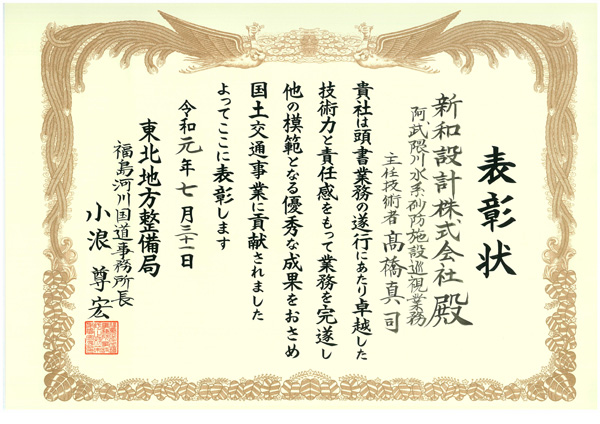 表彰状
新和設計株式会社 殿
阿武隈川水系砂防施設巡視業務
主任技術者 髙橋真司
貴社は頭書業務の遂行にあたり卓越した
技術力と責任感をもって業務を完遂し
他の模範となる優秀な成果をおさめ
国土交通事業に貢献されました
よってここに表彰します
令和元年七月三十一日
東北地方整備局
福島河川国道事務所長
小浪尊宏